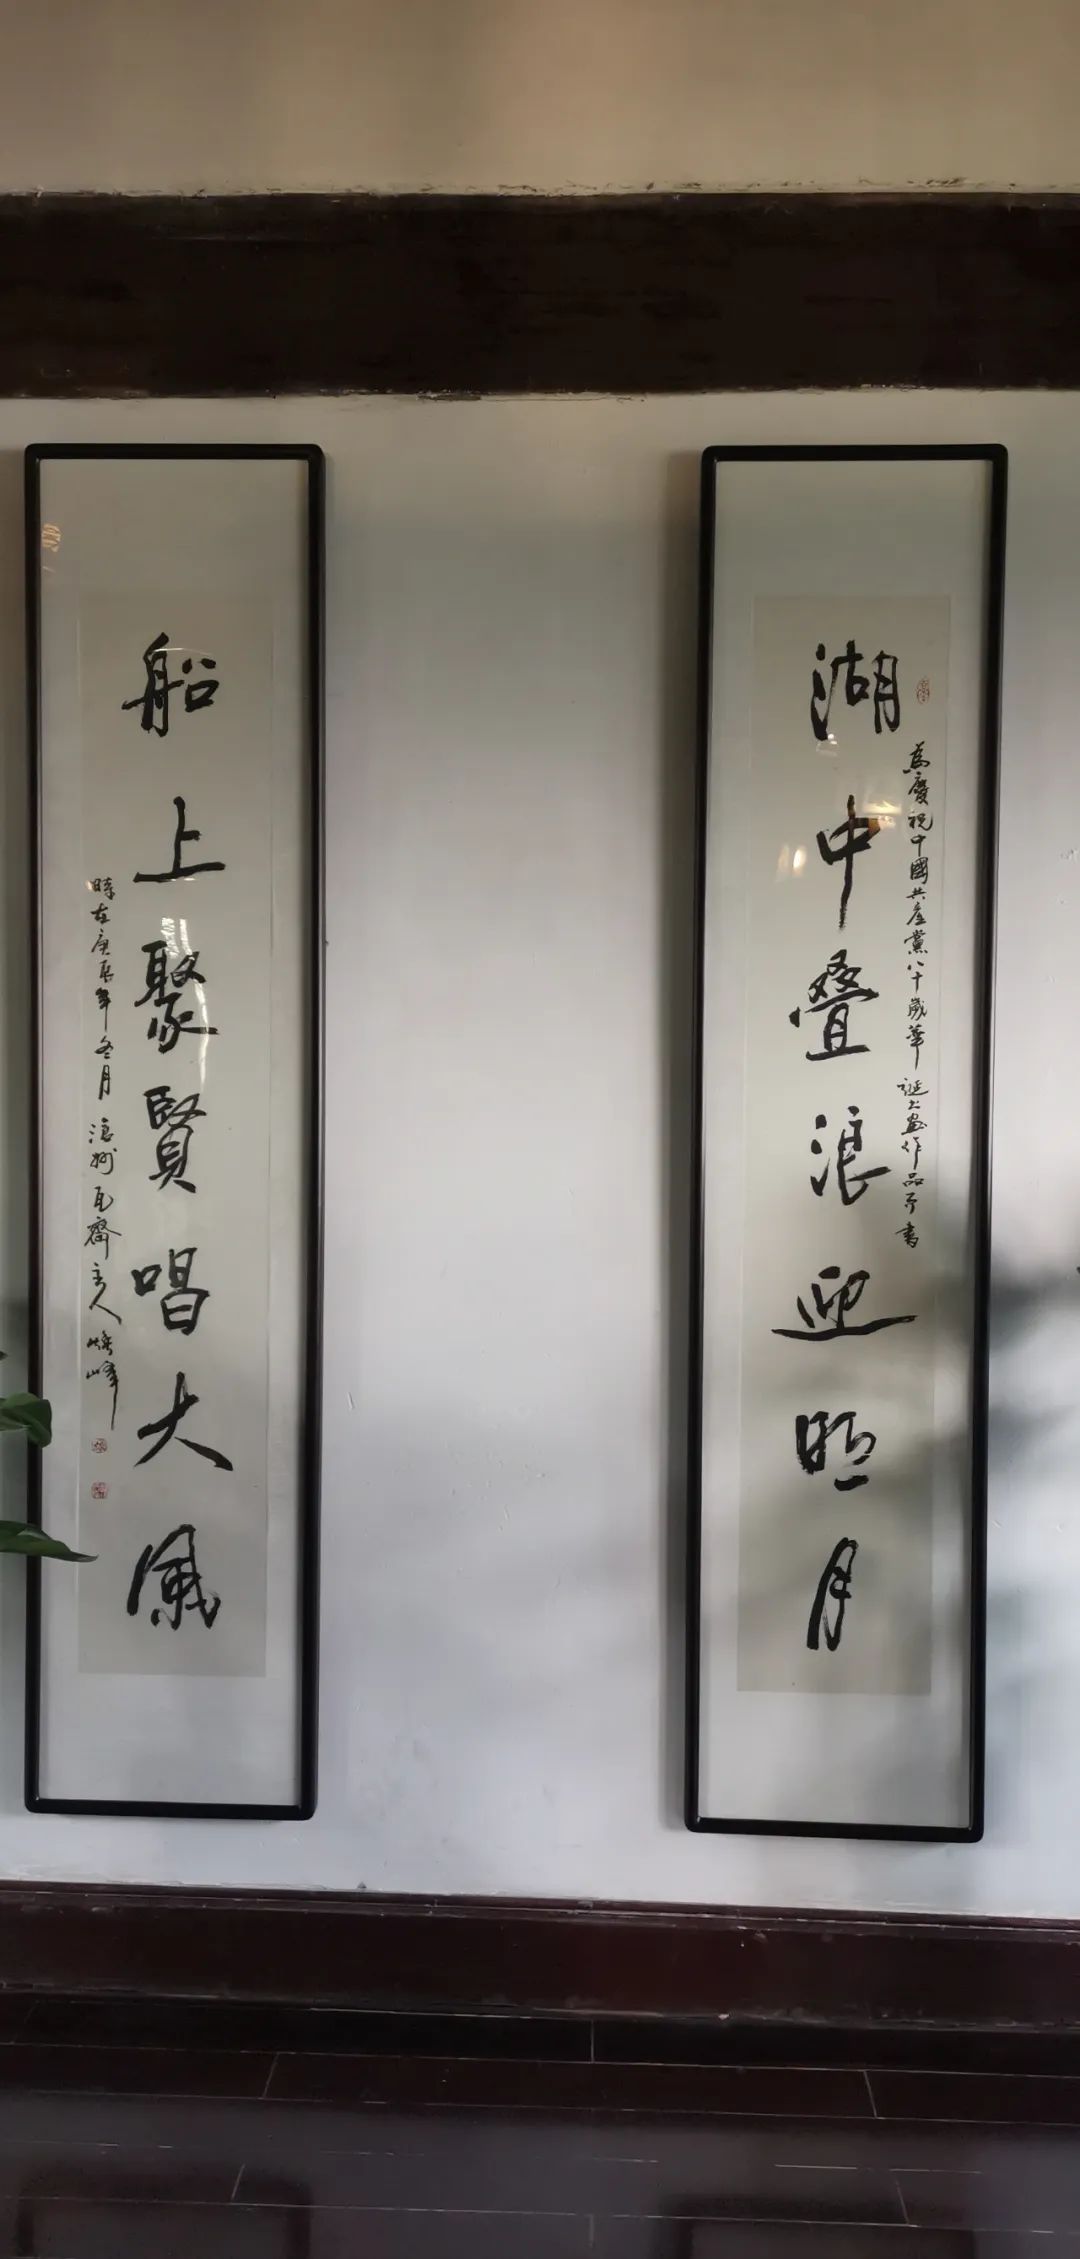 湖中叠浪迎明月
為慶祝中國共產黨八十歲華誕書畫作品可書
船上聚賢唱大風
時在庚辰年冬月浪州瓦齋主人 峰